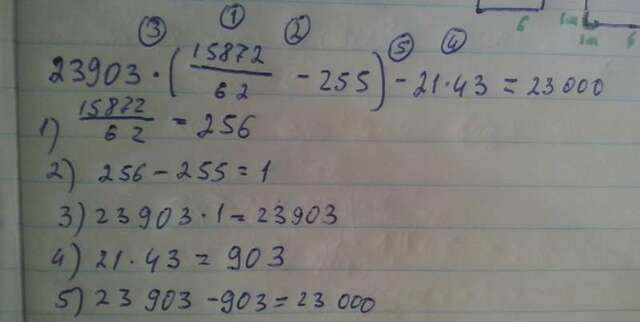 ③ ① ② ⑤ ④
23903 · (15872/62 - 255) - 21 · 43 = 23000
1) 15872/62 = 256
2) 256 - 255 = 1
3) 23903 · 1 = 23903
4) 21 · 43 = 903
5) 23 903 - 903 = 23 000
6